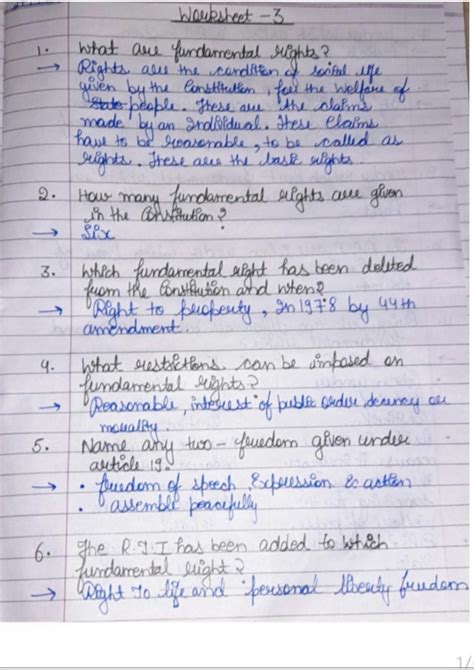 Worksheet - 3
1. What are fundamental rights?
→ Rights are the condition of social life
given by the Constitution, for the welfare of
people. These are the claims
made by an Individual. These Claims
have to be reasonable, to be called as
rights. These are the basic rights.
2. How many fundamental rights are given
in the Constitution?
→ Six
3. Which fundamental right has been deleted
from the Constitution and when?
→ Right to property, In 1978 by 44th
amendment.
4. What restrictions can be imposed on
fundamental rights?
→ Reasonable, interest of public order, decency or
morality
5. Name any two - freedom given under
article 19.
→ • freedom of speech, Expression & action
• assemble peacefully
6. The R.T.I has been added to which
fundamental right?
→ Right To life and personal liberty freedom
1/